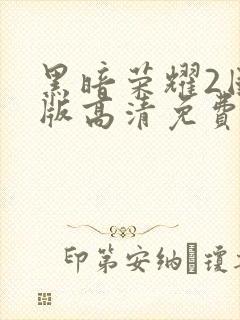 黑暗荣耀2
版高清免費
印第安纳�瓊